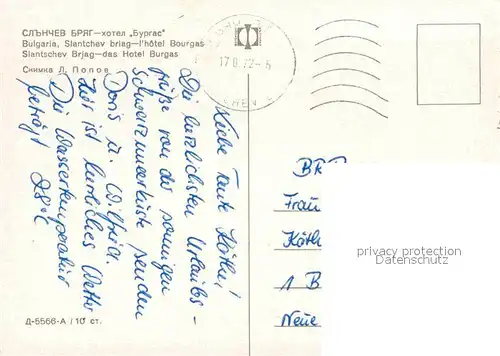 СЛЪНЧЕВ БРЯГ—хотел „Бургас"
Bulgaria, Slantchev briag—l'hôtel Bourgas
Slantschev Brjag—das Hotel Burgas
Снимка Л. Попов
17.8.72-5
Liebe Tante Käthe!
Die herzlichsten Urlaubs-
grüße von der sonnigen
Schwarzmeerküste senden
Doris u. Wilfried.
Hier ist herrliches Wetter
Die Wassertemperatur
beträgt 28°C
BRD
Frau
Käth
1 B
Neue
privacy protection
www.ansichtskarten-center.de
Д-5566-А / 10 ст.